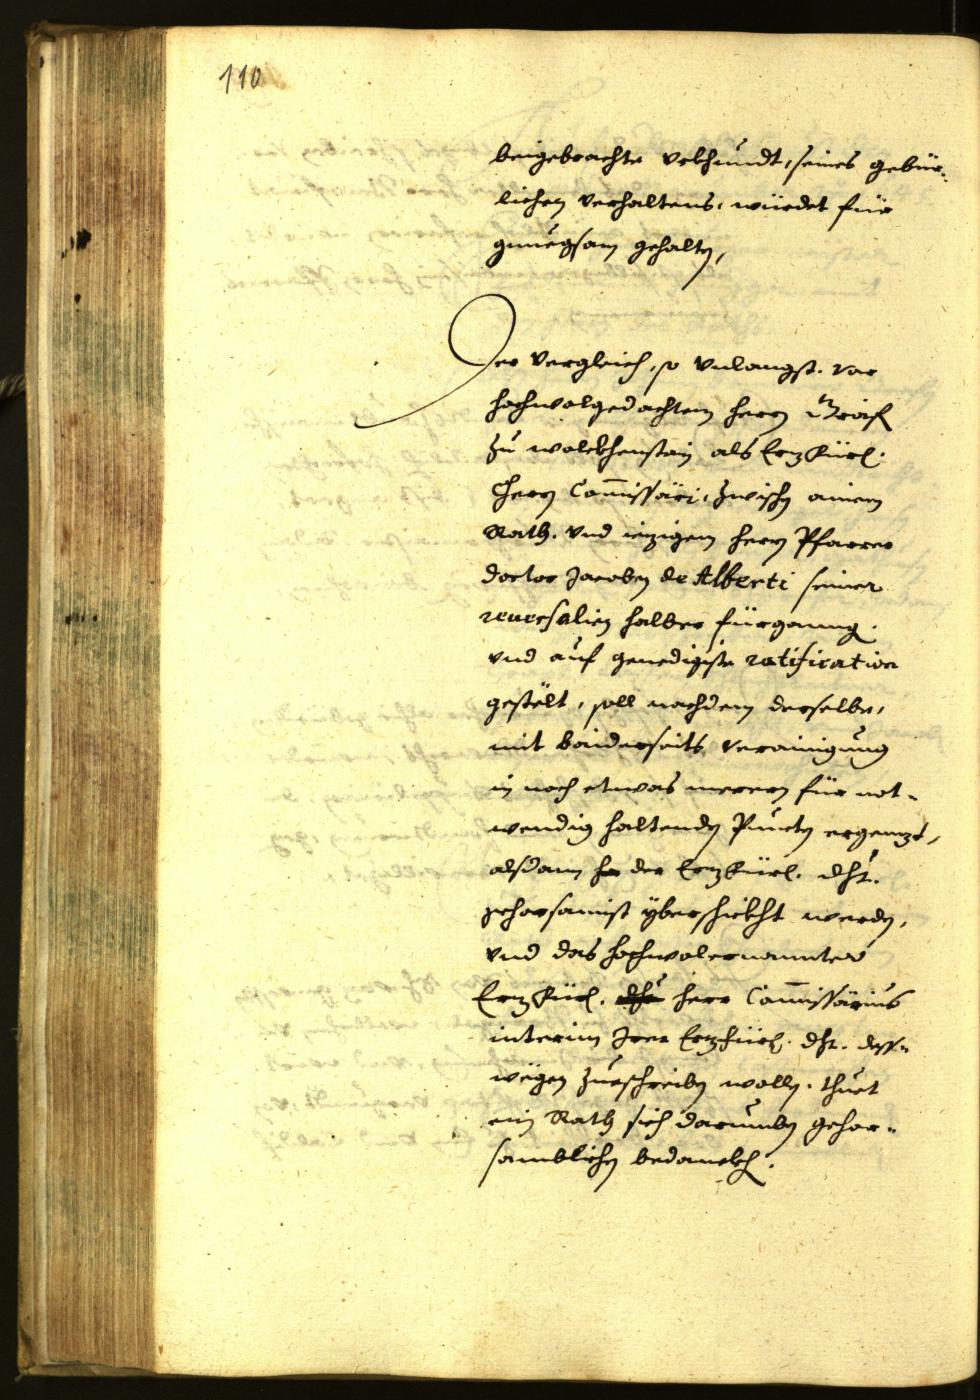 110
beigebrachte Vrkhundt, seines gebür„
lichen verhaltens, würdet für
gnuegsam gehalten,
Der Vergleich, so Vnlangst. vor
hochwolgedachtem herrn Graf
zu Wolckhenstain als Erzfürl:
Herrn Commissari, zwischen ainem
Rath. vnd iezigem herrn Pfarrer
doctor Jacoben de Alberti seiner
reuersalien halber fürganng.
vnd auf genedigiste ratification
gestölt, soll nachdem derselbe,
mit baiderseits verainigung
in noch etwas merern für not„
wendig haltenden Puncten ergennzt,
alsdann der Erzfürl. dht.
gehorsamist yberschickht werden,
vnd das hochwolernannter
Erzfürl. herr Commissärius
interim Irer Erzfürl. dht. dess„
wegen zueschreiben wollen. thuet
ein Rath sich darumben gehor„
samblichen bedanckhen.